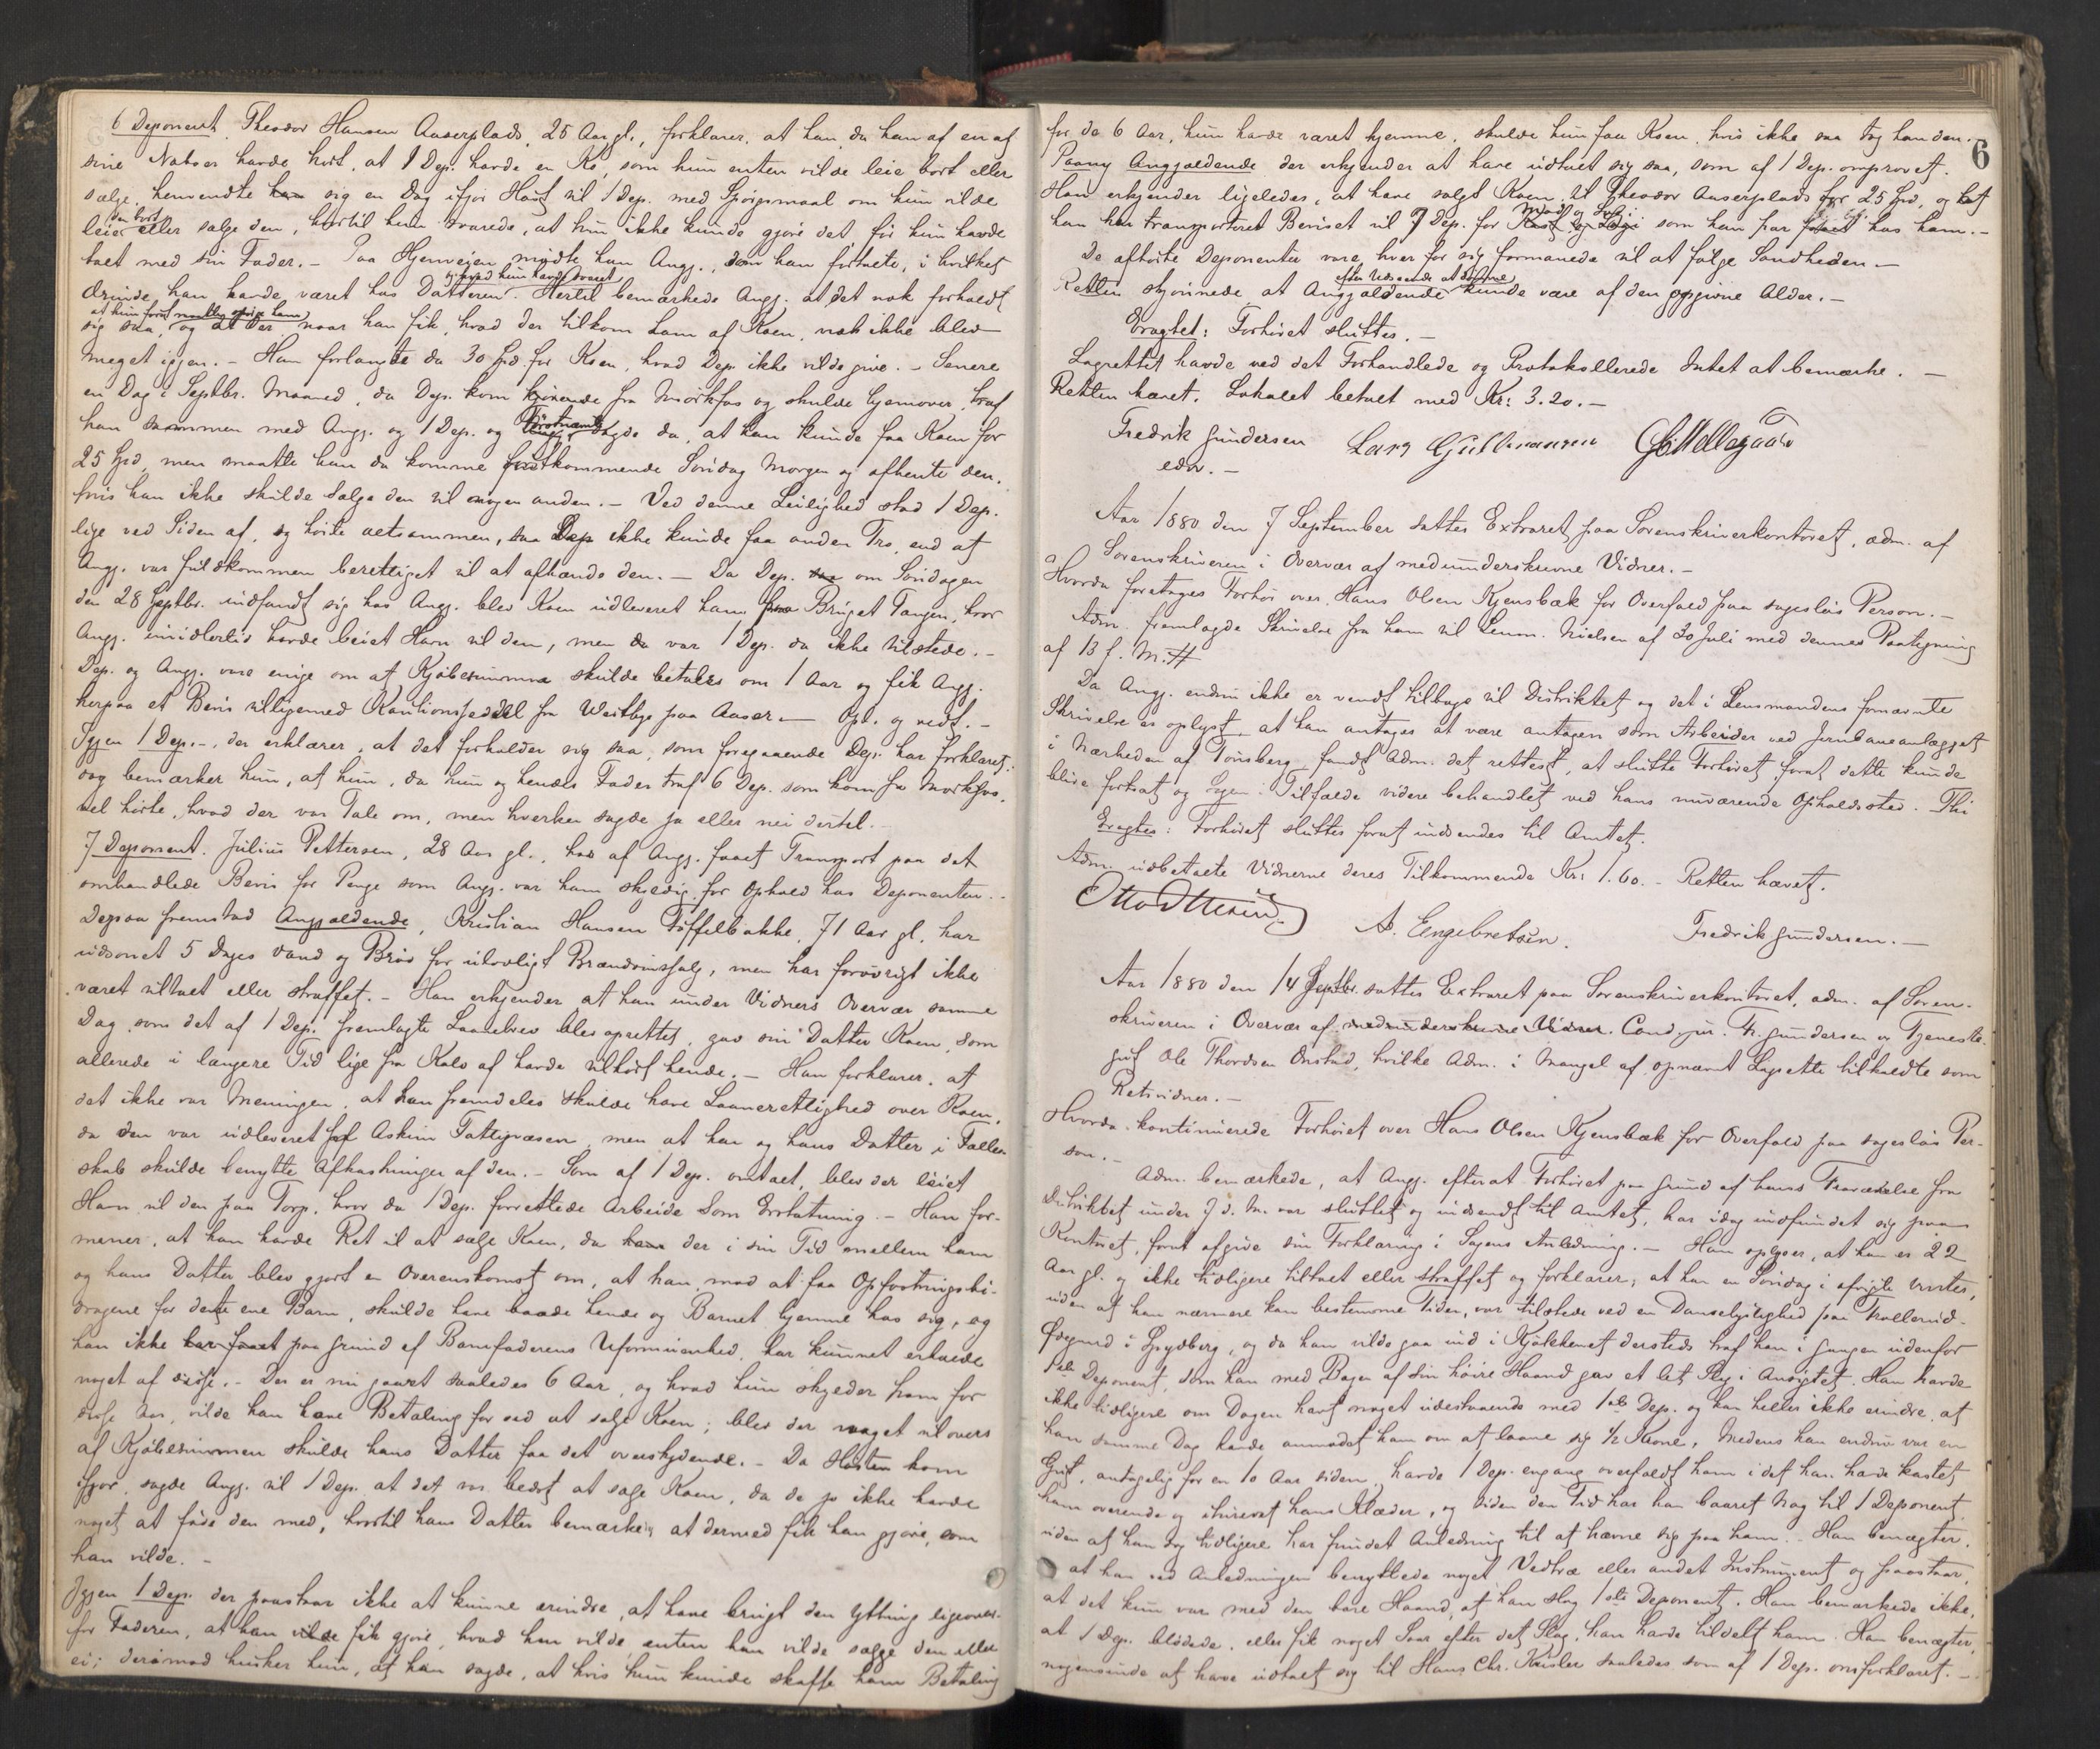 6 Deponent, Theodor Hansen Aaserplads, 25 Aar gl., forklarer, at han, da han af en af
sine Naboer havde hørt, at 1 Dep. havde en Ko, som hun enten vilde leie bort eller
sælge, henvendte han sig en Dag ifjor Høst til 1 Dep. med Spørgsmaal om hun vilde
leie den bort eller sælge den, hvortil hun svarede, at hun ikke kunde gjøre det før hun havde
talt med sin Fader. – Paa Hjemveien mødte han Angj., som han fortalte, i hvilket
Ærinde han havde været hos Datteren og hvad hun havde svaret. Hertil bemærkede Angj. at det nok forholdt
sig saa, at hun først maatte spørge ham og at der naar han fik, hvad der tilkom ham af Koen, nok ikke blev
meget igjen. – Han forlangte da 30 Spd. for Koen, hvad Dep. ikke vilde give. – Senere
en Dag i Septbr. Maaned, da Dep. kom kjørende fra Mørkfos og skulde hjemover, traf
han sammen med Angj. og 1 Dep. og Førstnævnte sagde da, at han kunde faa Koen for
25 Spd, men maatte han da komme førstkommende Søndag Morgen og afhente den,
hvis han ikke skulde sælge den til nogen anden. – Ved denne Leilighed stod 1 Dep.
lige ved Siden af, og hørte altsammen, saa Dep. ikke kunde faa anden Tro, end at
Angj. var fuldkommen berettiget til at afhænde den. – Da Dep. om Søndagen
den 28 Septbr. indfandt sig hos Angj. blev Koen udleveret ham fra Bruget Tangen, hvor
Angj. imidlertid havde leiet Havn til den, men da var 1 Dep. da ikke tilstede. –
Dep. og Angj. vare enige om at Kjøbesummen skulde betales om 1 Aar og fik Angj.
herpaa et Bevis tilligemed Kautionsseddel fra Westbye paa Aaser. – Opl. og vedt. –
Igjen 1 Dep. –, der erklærer, at det forholder sig saa, som foregaaende Dep. har forklaret.
dog bemærker hun, at hun, da hun og hendes Fader traf 6 Dep. som kom fra Mørkfos,
vel hørte, hvad der var Tale om, men hverken sagde ja eller nei dertil.
7 Deponent. Julius Pettersen, 28 Aar gl., har af Angj. faaet Transport paa det
omhandlede Bevis for Penge som Angj. var ham skyldig for Ophold hos Deponenten. –
Derpaa fremstod Angjældende, Kristian Hansen Tøffelbakke, 71 Aar gl. har
udsonet 5 Dages Vand og Brød for ulovligt Brændevinssalg, men har forøvrigt ikke
været tiltalt eller straffet. – Han erkjender at han under Vidners Overvær samme
Dag som det af 1 Dep. fremlagte Laanebrev blev oprettet, gav sin Datter Koen, som
allerede i længere Tid lige fra Kalv af havde tilhørt hende. – Han forklarer, at
det ikke var Meningen, at han fremdeles skulde have Laanerettighed over Koen,
da den var udleveret af Askim Fattigvæsen, men at han og hans Datter i Fælles-
skab skulde benytte Afkastninger af den. – Som af 1 Dep. omtalt, blev der leiet
Havn til den paa Torp, hvor da 1 Dep. forrettede Arbeide som Erstatning. – Han for-
mener, at han havde Ret til at sælge Koen, da der i sin Tid mellem ham
og hans Datter blev gjort en Overenskomst om, at han mod at faa Opfostringsbi-
dragene for dette ene Barn, skulde have baade hende og Barnet hjemme hos sig, og
han ikke har faaet paa Grund af Barnefaderens Uformuenhed, har kunnet erholde
noget af disse. – Der er nu gaaet saaledes 6 Aar, og hvad hun skylder ham for
disse Aar, vilde han have Betaling for ved at sælge Koen; blev der noget tilovers
af Kjøbesummen skulde hans Datter faa det overskydende. – Da Høsten kom
ifjor, sagde Angj. til 1 Dep. at det var bedst at sælge Koen, da de jo ikke havde
noget at føde den med, hvortil hans Datter bemærkede, at dermed fik han gjøre, som
han vilde. –
Igjen 1 Dep. der paastaar ikke at kunne erindre, at have brugt den Yttring ligeover-
for Faderen, at han vilde fik gjøre, hvad han vilde, enten han vilde sælge den eller
ei; derimod husker hun, at han sagde, at hvis hun kunde skaffe ham Betaling
6
for de 6 Aar, hun havde været hjemme, skulde hun faa Koen, hvis ikke saa tog han den.
Paany Angjældende der erkjender at have udtalt sig saa, som af 1 Dep. omprovet.
Han erkjender ligeledes, at have solgt Koen til Theodor Aaserplads for 25 Spd, og at
han har transporteret Beviset til 7 Dep. for Mad og Logi som han har faaet hos ham. –
De afhørte Deponenter vare hver for sig formanede til at følge Sandheden. –
Retten skjønnede, at Angjældende efter Udseende at dømme kunde være af den opgivne Alder. –
Eragtet: Forhøret sluttes. –
Lagrettet havde ved det Forhandlede og Protokollerede Intet at bemærke. –
Retten hævet. Lokalet betalt med Kr: 3.20. –
Fredrik Gundersen Lars Gulbransen
edsv. –
Aar 1880 den 7 September sattes Extraret paa Sorenskriverkontoret, adm. af
Sorenskriveren i Overvær af medunderskrevne Vidner. –
Hvorda foretoges Forhør over Hans Olsen Kjensbæk for Overfald paa sagesløs Person. –
Adm. fremlagde Skrivelse fra ham til Lensm. Nielsen af 30 Juli med dennes Paategning
af 13 f. M.
Da Angj. endnu ikke er vendt tilbage til Distriktet og det i Lensmandens fornævnte
Skrivelse er oplyst, at han antages at være antagen som Arbeider ved Jernbaneanlægget
i Nærheden af Tønsberg, fandt Adm. det rettest, at slutte Forhøret, forat dette kunde
blive fortsat og Sagen i Tilfælde videre behandlet ved hans nuværende Opholdssted. Thi
Eragtes: Forhøret sluttes forat indsendes til Amtet.
Adm. udbetalte Vidnerne deres Tilkommende Kr: 1.60. – Retten hævet.
A. Engebretsen. Fredrik Gundersen. –
Aar 1880 den 14 Septbr. sattes Extraret paa Sorenskriverkontoret, adm. af Soren-
skriveren i Overvær af medunderskrevne Vidner. Cand. jur. Fr. Gundersen og Tjeneste-
gut Ole Thordsen Onstad, hvilke Adm. i Mangel af opnævnt Lagrette tilkaldte som
Retsvidner. –
Hvorda kontinuerede Forhøret over Hans Olsen Kjensbæk for Overfald paa sagesløs Per-
son. –
Adm. bemærkede, at Angj. efterat Forhøret paa Grund af hans Fraværelse fra
Distriktet under 7 d. M. var sluttet og indsendt til Amtet, har idag indfundet sig paa
Kontoret, forat afgive sin Forklaring i Sagens Anledning. – Han oplyser, at han er 22
Aar gl. og ikke tidligere tiltalt eller straffet og forklarer, at han en Søndag i afvigte Vinter,
uden at han nærmere kan bestemme Tiden, var tilstede ved en Danselystighed paa Trollerud-
Ødegaard i Spydberg, og da han vilde gaa ind i Kjøkkenet dersteds traf han i Gangen udenfor
1ste Deponent, som han med Bagen af sin høire Haand gav et let Slag i Ansigtet. Han havde
ikke tidligere om Dagen havt noget udestaaende med 1ste Dep. og kan heller ikke erindre, at
han samme Dag havde anmodet ham om at laane sig 1/2 Krone. Medens han endnu var en
Gut, antagelig for en 10 Aar siden, havde 1 Dep. engang overfaldt ham i det han havde kastet
ham overende og iturevet hans Klæder, og siden den Tid har han baaret Nag til 1 Deponent
uden at han dog tidligere har fundet Anledning til at hævne sig paa ham. – Han benægter,
at han ved Anledningen benyttede noget Vedtræ eller andet Instrument og paastaar,
at det kun var med den bare Haand, at han slog 1ste Deponent. Han bemærkede ikke,
at 1 Dep. blødede, eller fik noget Saar efter det Slag, han havde tildelt ham. Han benægter,
nogensinde at have udtalt sig til Hans Chr. Kusler saaledes som af 1 Dep. omforklaret. –